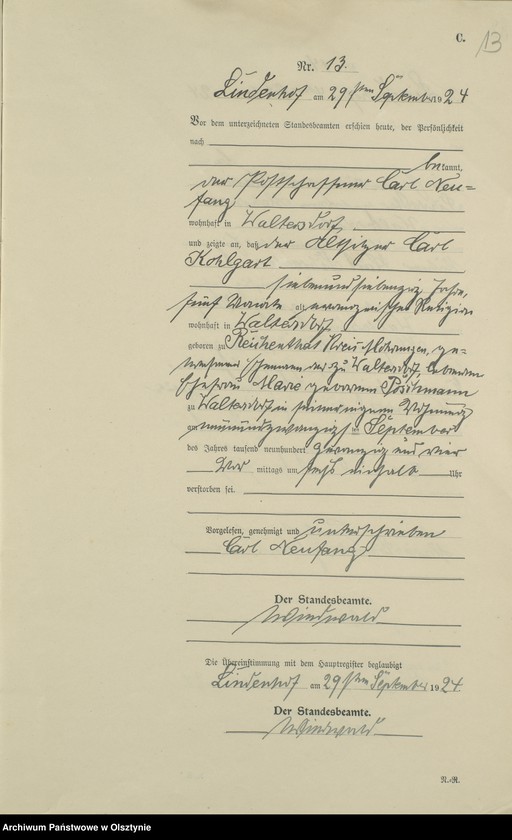 C.
13
Nr. 13.
Lindenhof am 29sten September 1924
Vor dem unterzeichneten Standesbeamten erschien heute, der Persönlichkeit
nach
bekannt,
der Postschaffner Carl Neu=
fang
wohnhaft in Waltersdorf
und zeigte an, daß der Altsitzer Carl
Kohlgart
siebenundsiebenzig Jahre,
fünf Monate alt evangelischer Religion
wohnhaft in Waltersdorf
geboren zu Reichenthal Kreis Mohrungen, ge=
wesener Ehemann der zu Waltersdorf lebenden
Ehefrau Marie geborenen Poschmann
zu Waltersdorf in seiner eigenen Wohnung
am neunundzwanzigsten September
des Jahres tausend neunhundert zwanzig und vier
Vor mittags um sechs einhalb Uhr
verstorben sei.
Vorgelesen, genehmigt und unterschrieben
Carl Neufang
Der Standesbeamte.
Die Übereinstimmung mit dem Hauptregister beglaubigt
Lindenhof am 29sten September 1924
Der Standesbeamte.
N.-R.
Archiwum Państwowe w Olsztynie